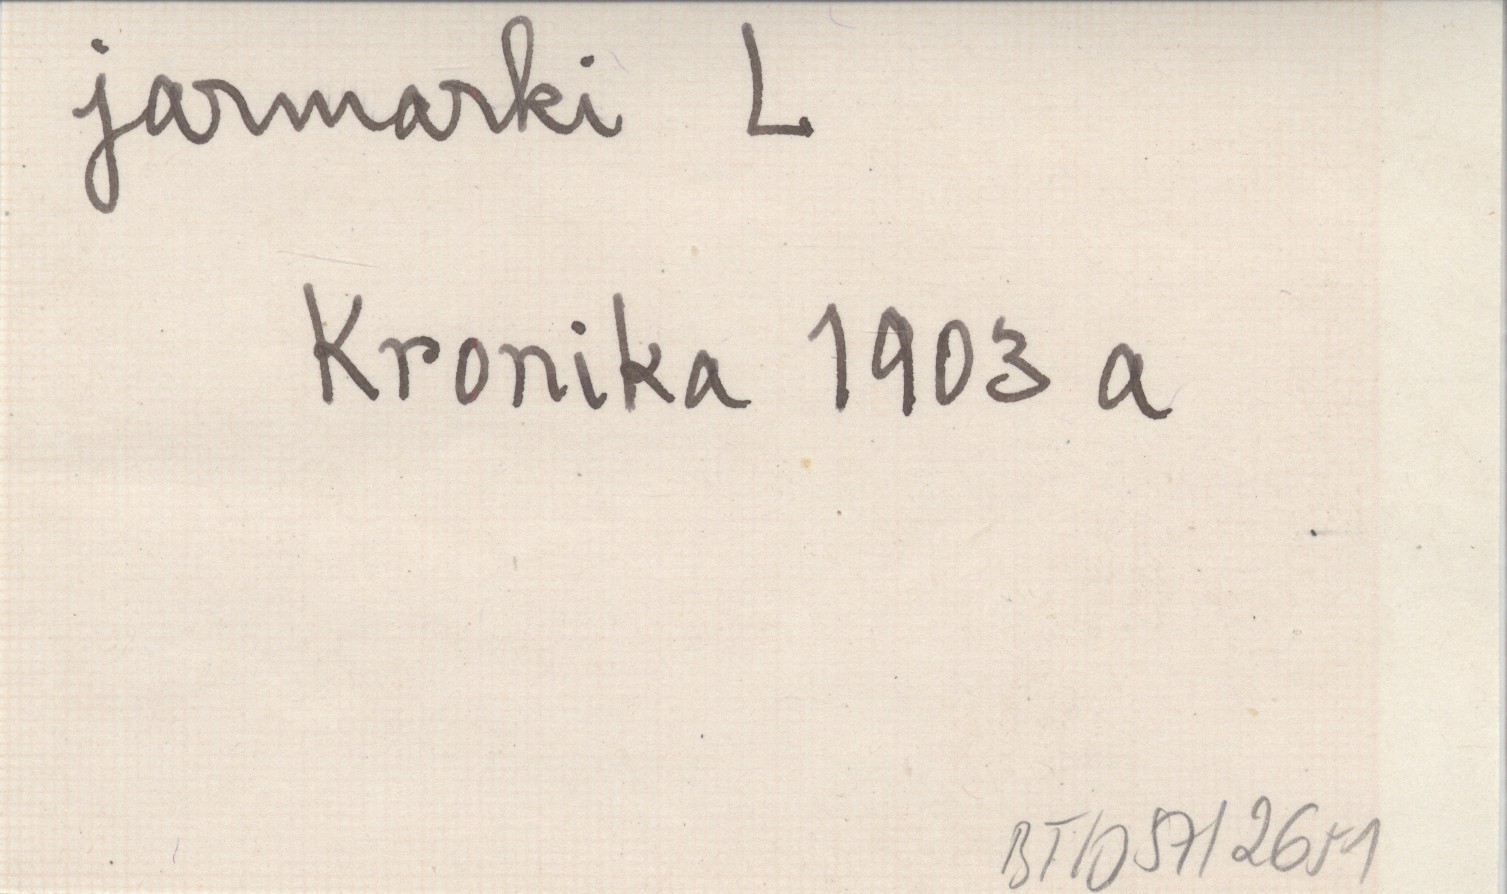 jarmarki L
Kronika 1903 a
BT/057/2651